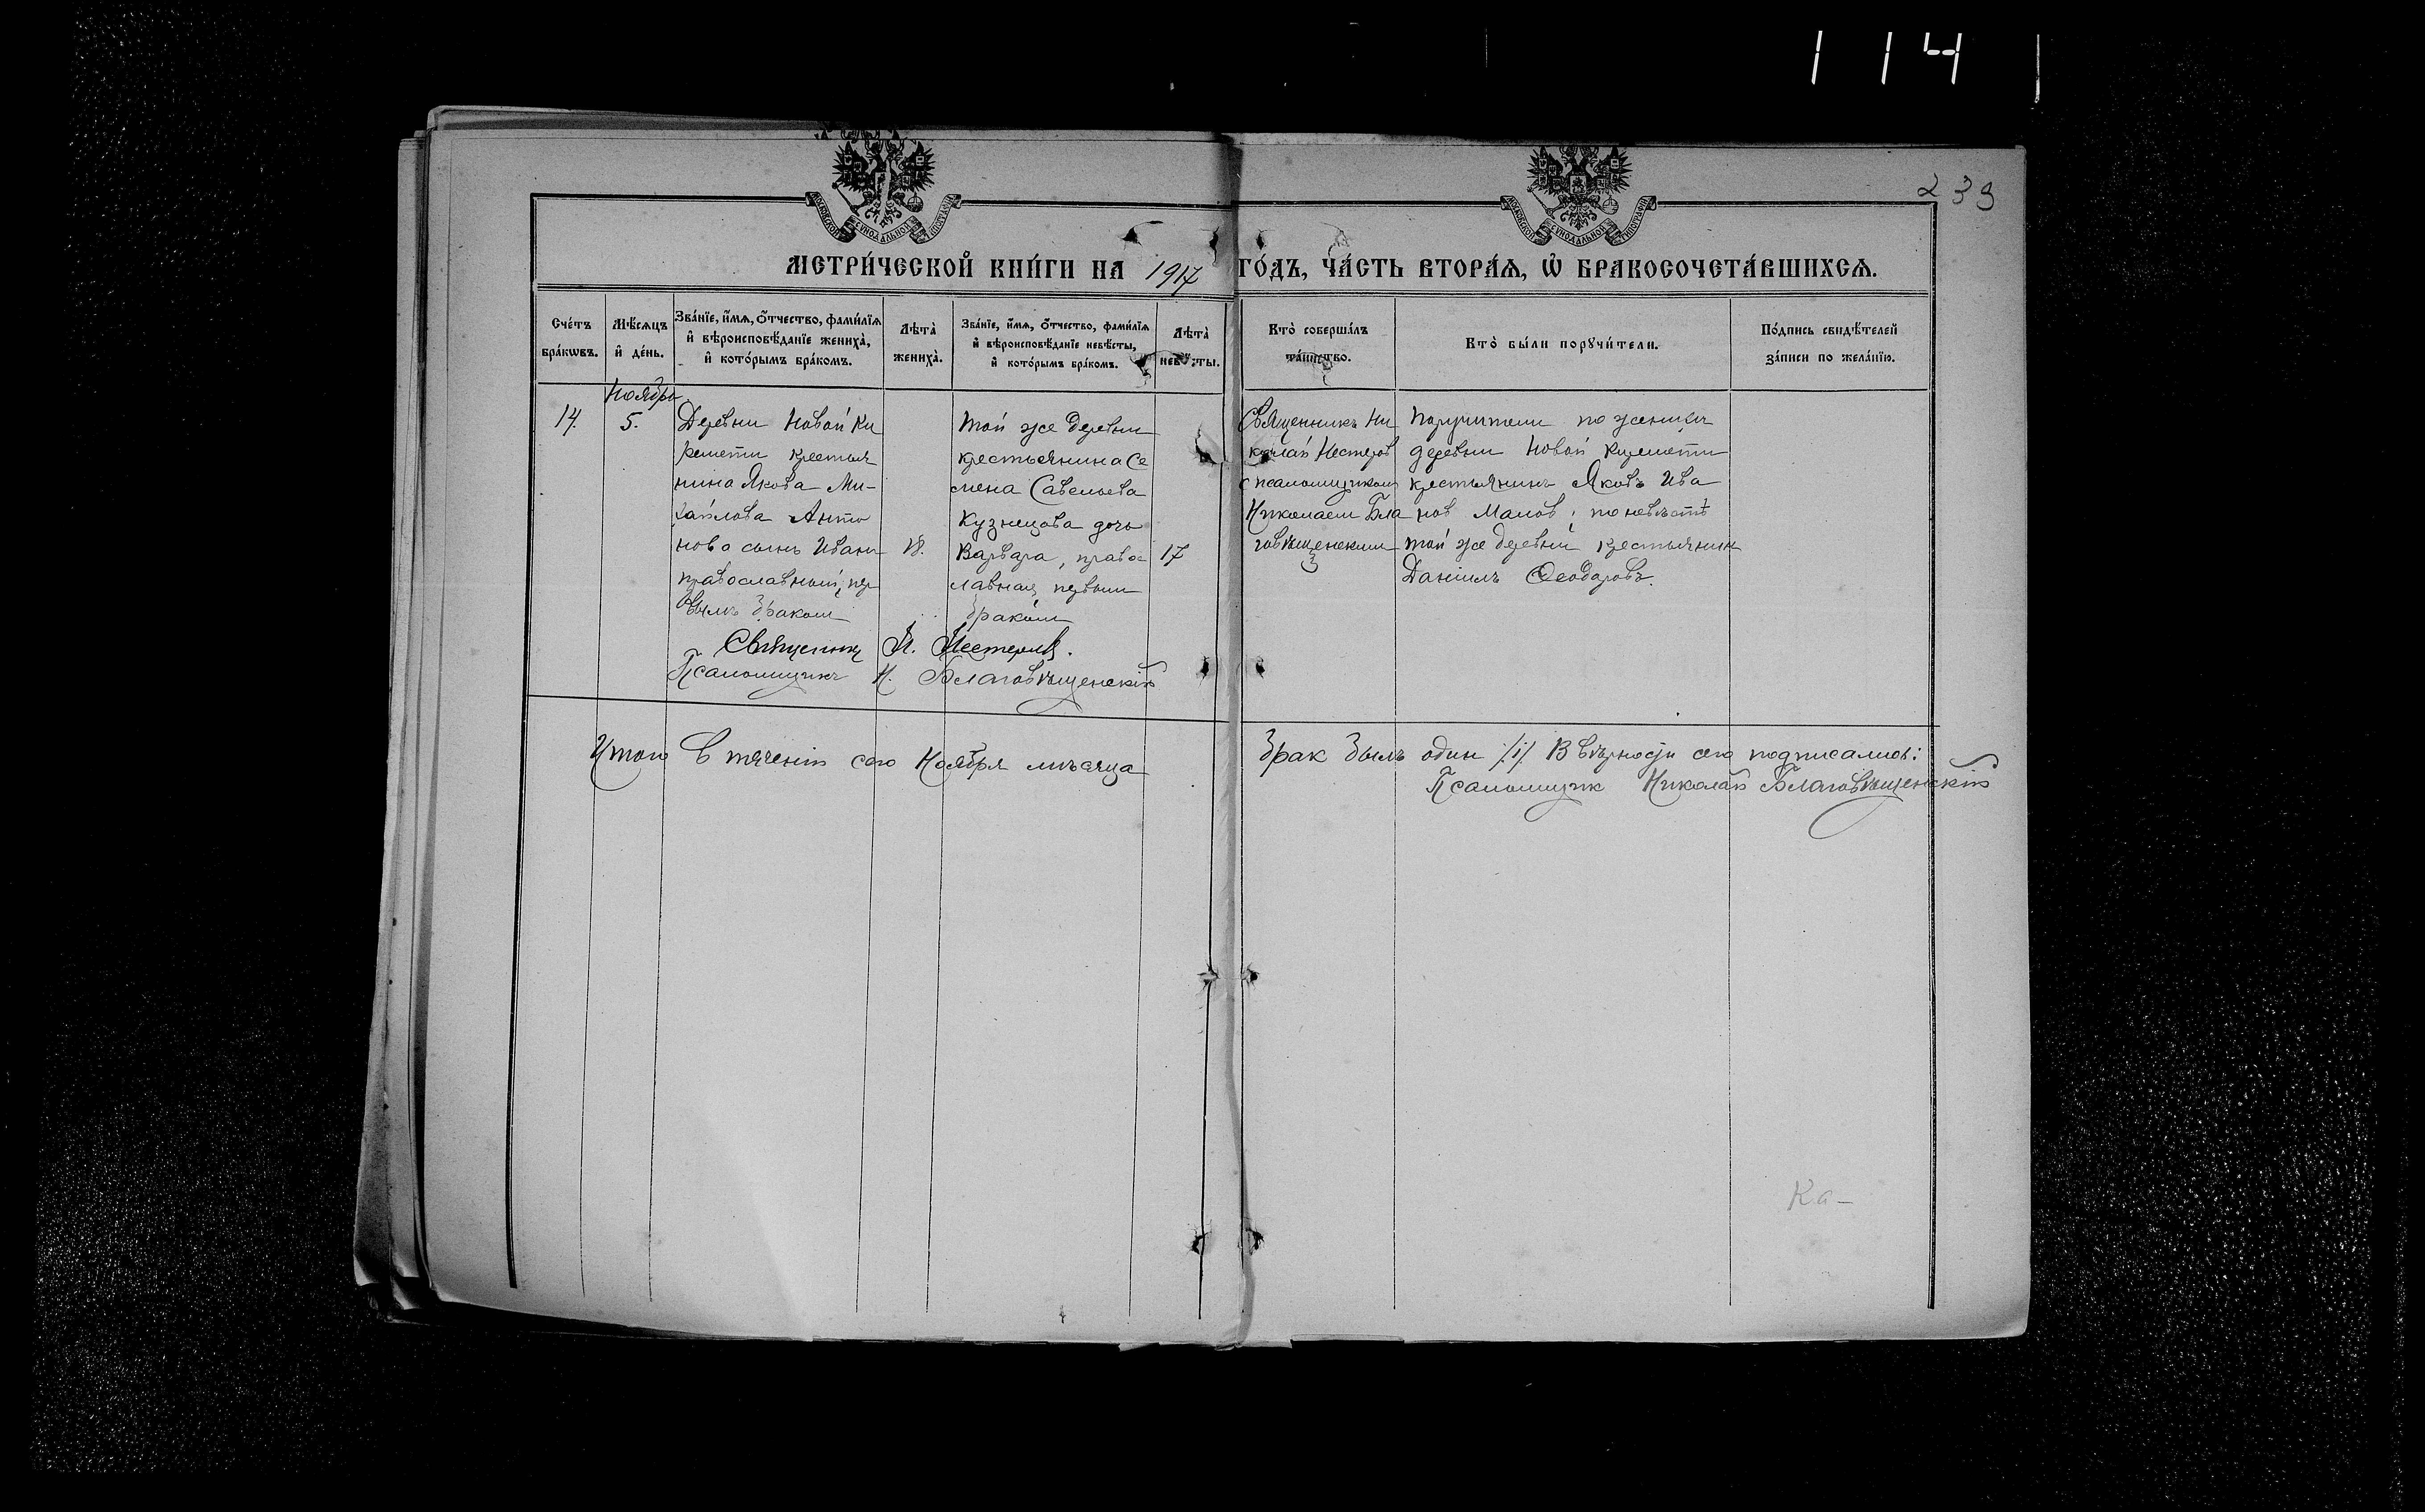 114
239
МЕТРИ́ЧЕСКОЙ КНИ́ГИ НА 1917 ГО́ДЪ, ЧА́СТЬ ВТОРА́Я, Ѽ БРАКОСОЧЕТА́ВШИХСЯ.
Сче́тъ бра́кѡвъ.
Мѣ́сяцъ и де́нь.
Зва́нїе, и҆́мя, о҆́тчество, фами́лїя и вѣроисповѣ́данїе жениха̀, и кото́рымъ бра́комъ.
Лѣта̀ жениха̀.
Зва́нїе, и҆́мя, о҆́тчество, фами́лїя и вѣроисповѣ́данїе невѣ́сты, и кото́рымъ бра́комъ.
Лѣта̀ невѣ́сты.
Кто̀ соверша́лъ та́инство.
Кто̀ бы́ли порꙋчи́тели.
По́дпись свидѣ́телей за́писи по жела́нїю.
Ноябрь
14.
5.
Деревни Новой Ки
ремети крестья
нина Якова Ми-
хайлова Анто
нова сынъ Иванъ
православный, пер
вымъ браком
18.
Той же деревни
крестьянина Се
мена Савельева
Кузнецова дочь
Варвара, право
лавная, первым
браком
17
Священникъ Ни
колай Нестеров
с псаломщиком
Николаем Бла
говѣщенским
Поручители по женихѣ
деревни Новой Киремети
крестьянинъ Яковъ Ива
нов Мамов; по невѣстѣ
той же деревни крестьянин
Данiилъ Ѳеодоровъ.
Священникъ Н. Нестеровъ.
Псаломщикъ Н. Благовѣщенскій
Итого в теченіи сего Ноября мѣсяца брак былъ один /1/. В вѣрности сего подписались:
Псаломщик Николай Благовѣщенскій
Ка-